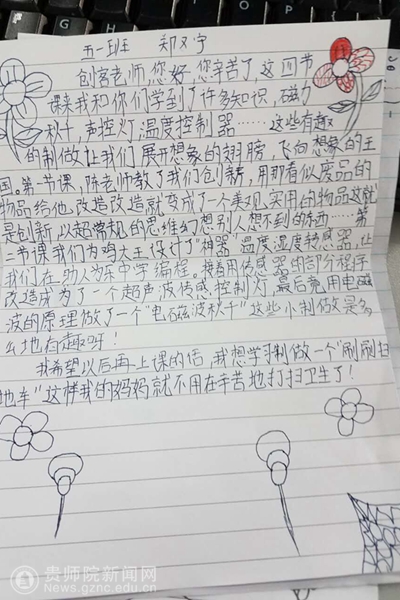 五一班 郑又宁
创客老师,您好,您辛苦了,这四节
课来我和你们学到了许多知识,磁力
秋千,声控灯,温度控制器……这些有趣
的制做让我们展开想象的翅膀,飞向想象的王
国。第一节课,陈老师教了我们创新,用那看似废品的
物品给他改造改造就变成了一个美观实用的物品这就
是创新,以超常机的思维幻想别人想不到的东西……第
二节课我们为鸡大王设计了"神器"温度湿度转感器,让
我们在助人为乐中学编程。接着用传感器的部分程序
改造成为了一个超声波传感控制灯,最后费用电磁
波的原理做了一个"电磁波秋千"这些小制做是多
么地有趣呀!
我希望以后再上课的话,我想学习制做一个"刷刷扫
地车"这样我的妈妈就不用在辛苦地打扫卫生了!
贵师院新闻网
News.gznc.edu.cn